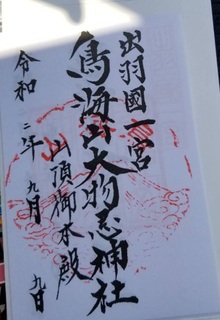 出羽國一宮
鳥海山大物忌神社
山頂御本殿
令和二年九月九日